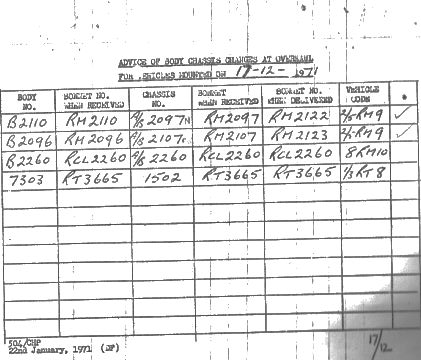 ADVICE OF BODY CHASSIS CHANGES AT OVERHAUL
FOR VEHICLES MOUNTED ON 17-12-1971
BODY NO. BONNET NO. WHEN RECEIVED CHASSIS NO. BONNET WHEN RECEIVED BONNET NO. WHEN DELIVERED VEHICLE CODE *
B2110 RM2110 2097 RM2097 RM2122 2/5RM9 ✓
B2096 RM2096 2107 RM2107 RM2123 2/5RM9 ✓
B2260 RCL2260 2260 RCL2260 RCL2260 8RM10
7303 RT3665 1502 RT3665 RT3665 1/3RT8
504/CHP
22nd January, 1971 (DP)
17/12